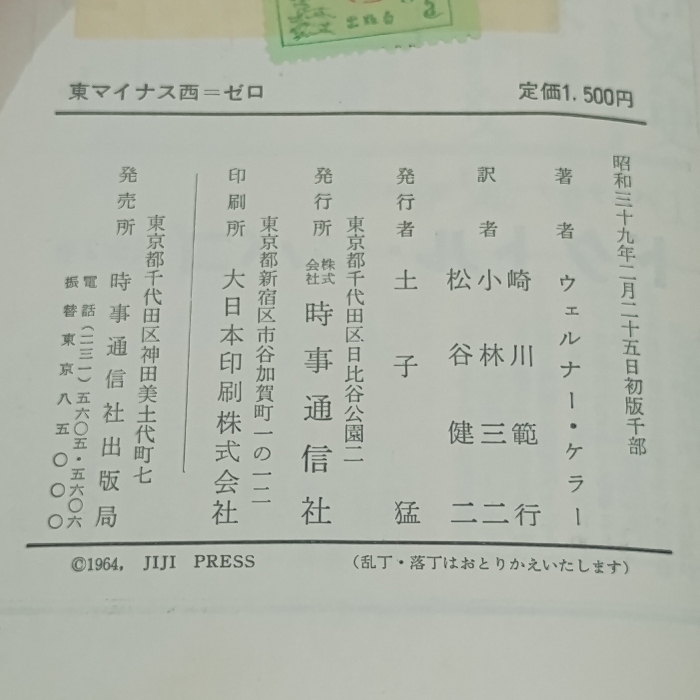 東マイナス西＝ゼロ
定価1.500円
昭和三十九年二月二十五日初版千部
著者 ウェルナー・ケラー
訳者 崎川範行
小林三二
松谷健二
発行者 土子猛
東京都千代田区日比谷公園二
発行所 株式会社 時事通信社
東京都新宿区市谷加賀町一の一二
印刷所 大日本印刷株式会社
東京都千代田区神田美土代町七
発売所 時事通信社出版局
電話（二三一）五六〇五・五六〇六
振替東京八五〇〇〇
©1964, JIJI PRESS
（乱丁・落丁はおとりかえいたします）